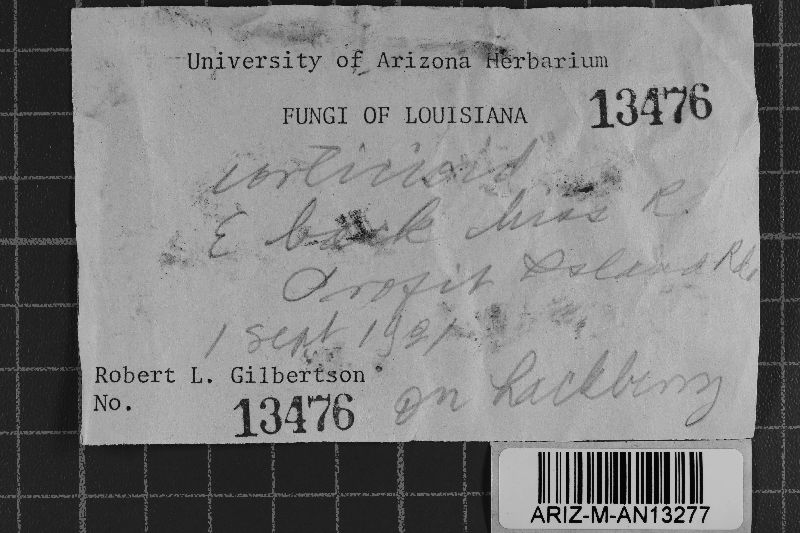 University of Arizona Herbarium
FUNGI OF LOUISIANA 13476
corticioid
E bank Miss R.
Profit Island Rd.
1 Sept 1981
Robert L. Gilbertson
No. 13476 on hackberry
ARIZ-M-AN13277